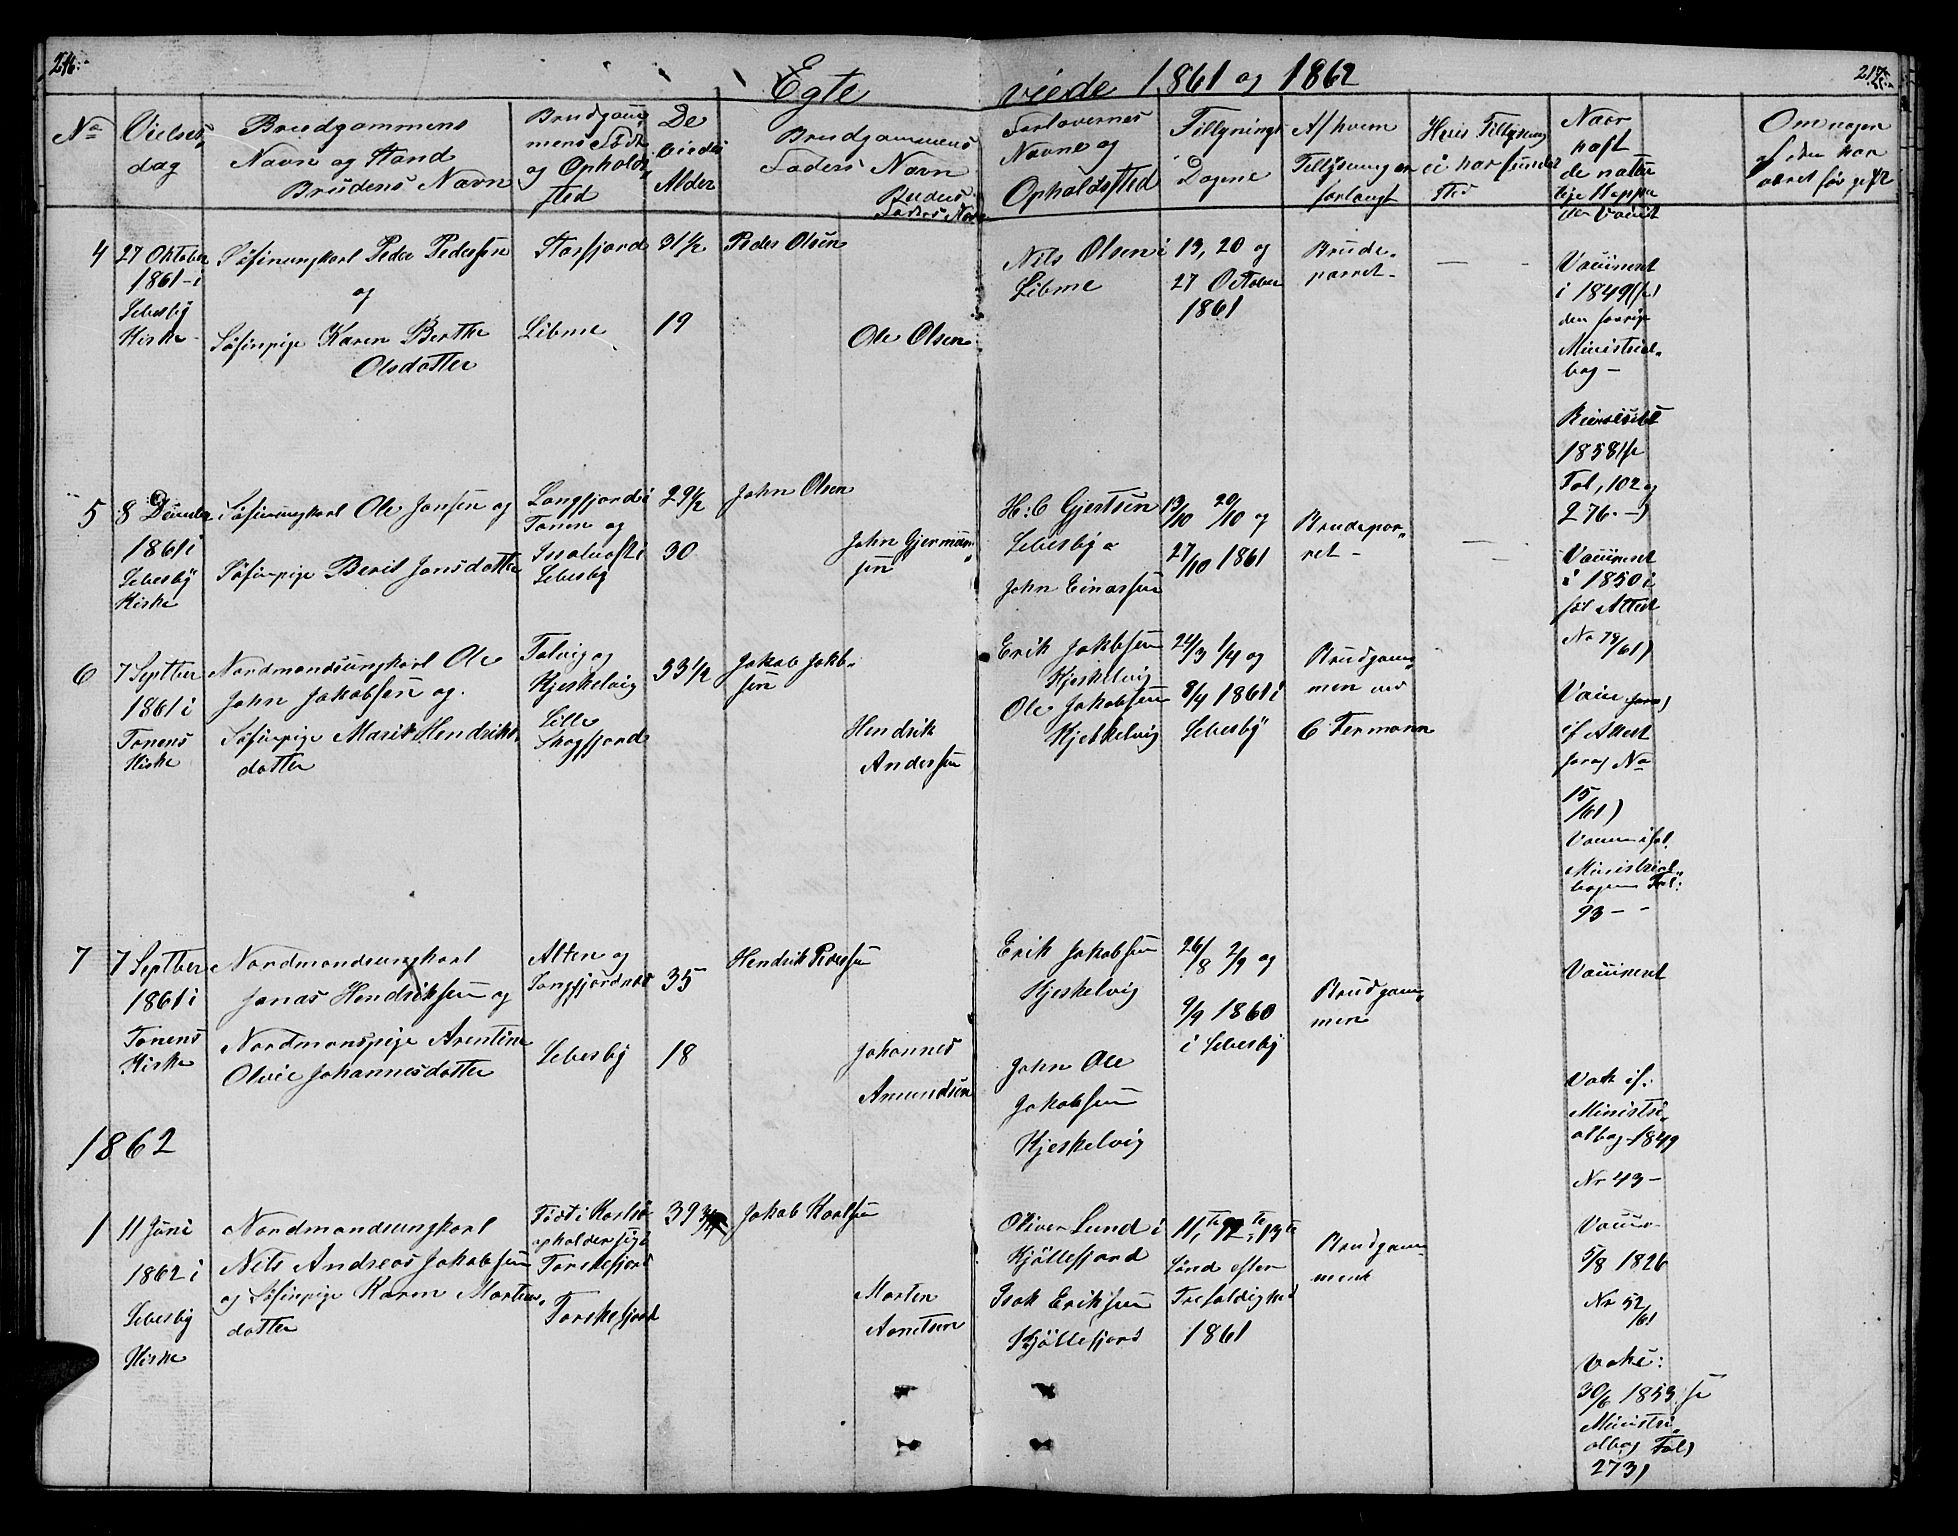 216.
Egte
viede 1861 og 1862
217.
No
Vielses
dag
Brudgommens
Navn og Stand
Brudens Navn
Brudgom
mens Föde
og Opholds
sted
De
viedes
Alder
Brudgommens
Faders Navn
Brudens
Faders Navn
Forlovernes
Navne og
Opholdssted
Tillysnings
Dagene
Af hvem
Tillysningen
forlangt
Hvis Tillysning
ei har funden
sted
Naar
haft
de natur
lige Koppe
Om nogen
af dem har
været før gift
4
27 Oktober
1861 i
Lebesby
Kirke
Søfinungkarl Peder Pedersen
og
Søfinpige Karen Berthe
Olsdatter
Storfjord
Libme
31½
19
Peder Olsen
Ole Olsen
Nils Olsen i
Libme
13, 20 og
27 October
1861
Brude
parret
Vaccineret
i 1849 (se
den forrige
Ministrial
bog -
1858 (se
Fol, 102 og
276 -)
5
8 December
1861 i
Lebesby
Kirke
Søfinungkarl Ole Jonsen og
Søfinpige Berit Jonsdatter
Langfjord i
Tanen og
Lebesby
29½
30
John Olsen
John Gjermun
sen
H: C Gjertsen
Lebesby &
John Einarsen
13/10 20/10 og
27/10 1861
Brudepar
ret -
Vaccineret
i 1850 i
føl Attest
No 79/61)
6
7 Septber
1861 i
Tanens
Kirke
Nordmandsungkarl Ole
John Jakobsen og
Søfinpige Marit Hendriks
datter
Talvig og
Kjeskelvig
Lille
Skogfjord
33½
Jakob Jakob
sen
Hendrik
Andersen
Erik Jakobsen
Kjeskelvig
Ole Jakobsen
Kjeskelvig
24/3 1/4 og
8/4 1861 i
Lebesby
Brudgom
men ved
C Fermann
if Attest
No
15/61)
Ministrial
bogen Fol:
93 -
7
7 Septber
1861 i
Tanens
Kirke
Nordmandsungkarl
Jonas Hendriksen og
Nordmanspige Arentine
Olvie Johannesdatter
Alten og
Langfjordnes
Lebesby
35
18
Hendrik Pedersen
Johannes
Amundsen
Erik Jakobsen
Kjeskelvig
John Ole
Jakobsen
Kjeskelvig
26/8 2/9 og
9/9 1860
i Lebesby
Brudgom
men
Vaccineret
Vak if.
Ministri
albog 1849
Nr 43 -
1862
1
11 Juni
1862 i
Lebesby
Kirke
Nordmandsungkarl
Nils Andreas Jakobsen
og Søfinpige Karen Morten
datter
Född i Karlsö
opholder sig i
Torskefjord
Torskefjord
39
Jakob Karlsen
Morten
Arntsen
Oliver Lund i
Kjöllefjord
Isak Eriksen
Kjöllefjord
11te, 12te, 13te
Sønd efter
Trefoldighed
1861
Brudgom
men
Vaccin
5/8 1826
Nr 52/61
Vake:
30/6 1853 se
Ministri
albog Fol)
273)